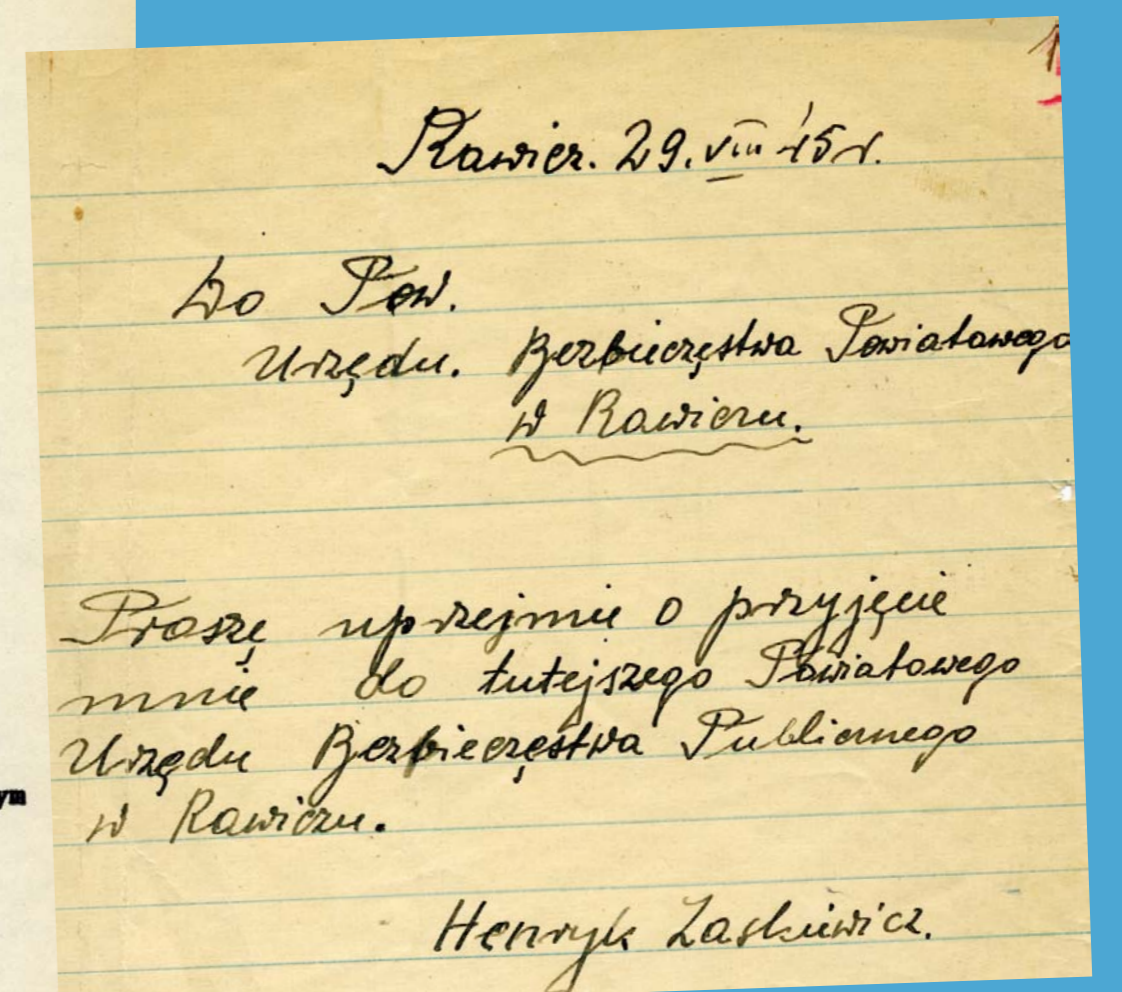 Rawicz. 29. VIII 45 r.
Do Pow.
Urzędu. Bezbieczęstwa Powiatowego
w Rawiczu.
Proszę uprzejmie o przyjęcie
mnie do tutejszego Powiatowego
Urzędu Bezbieczęstwa Publicznego
w Rawiczu.
ym
Henryk Laskiewicz.